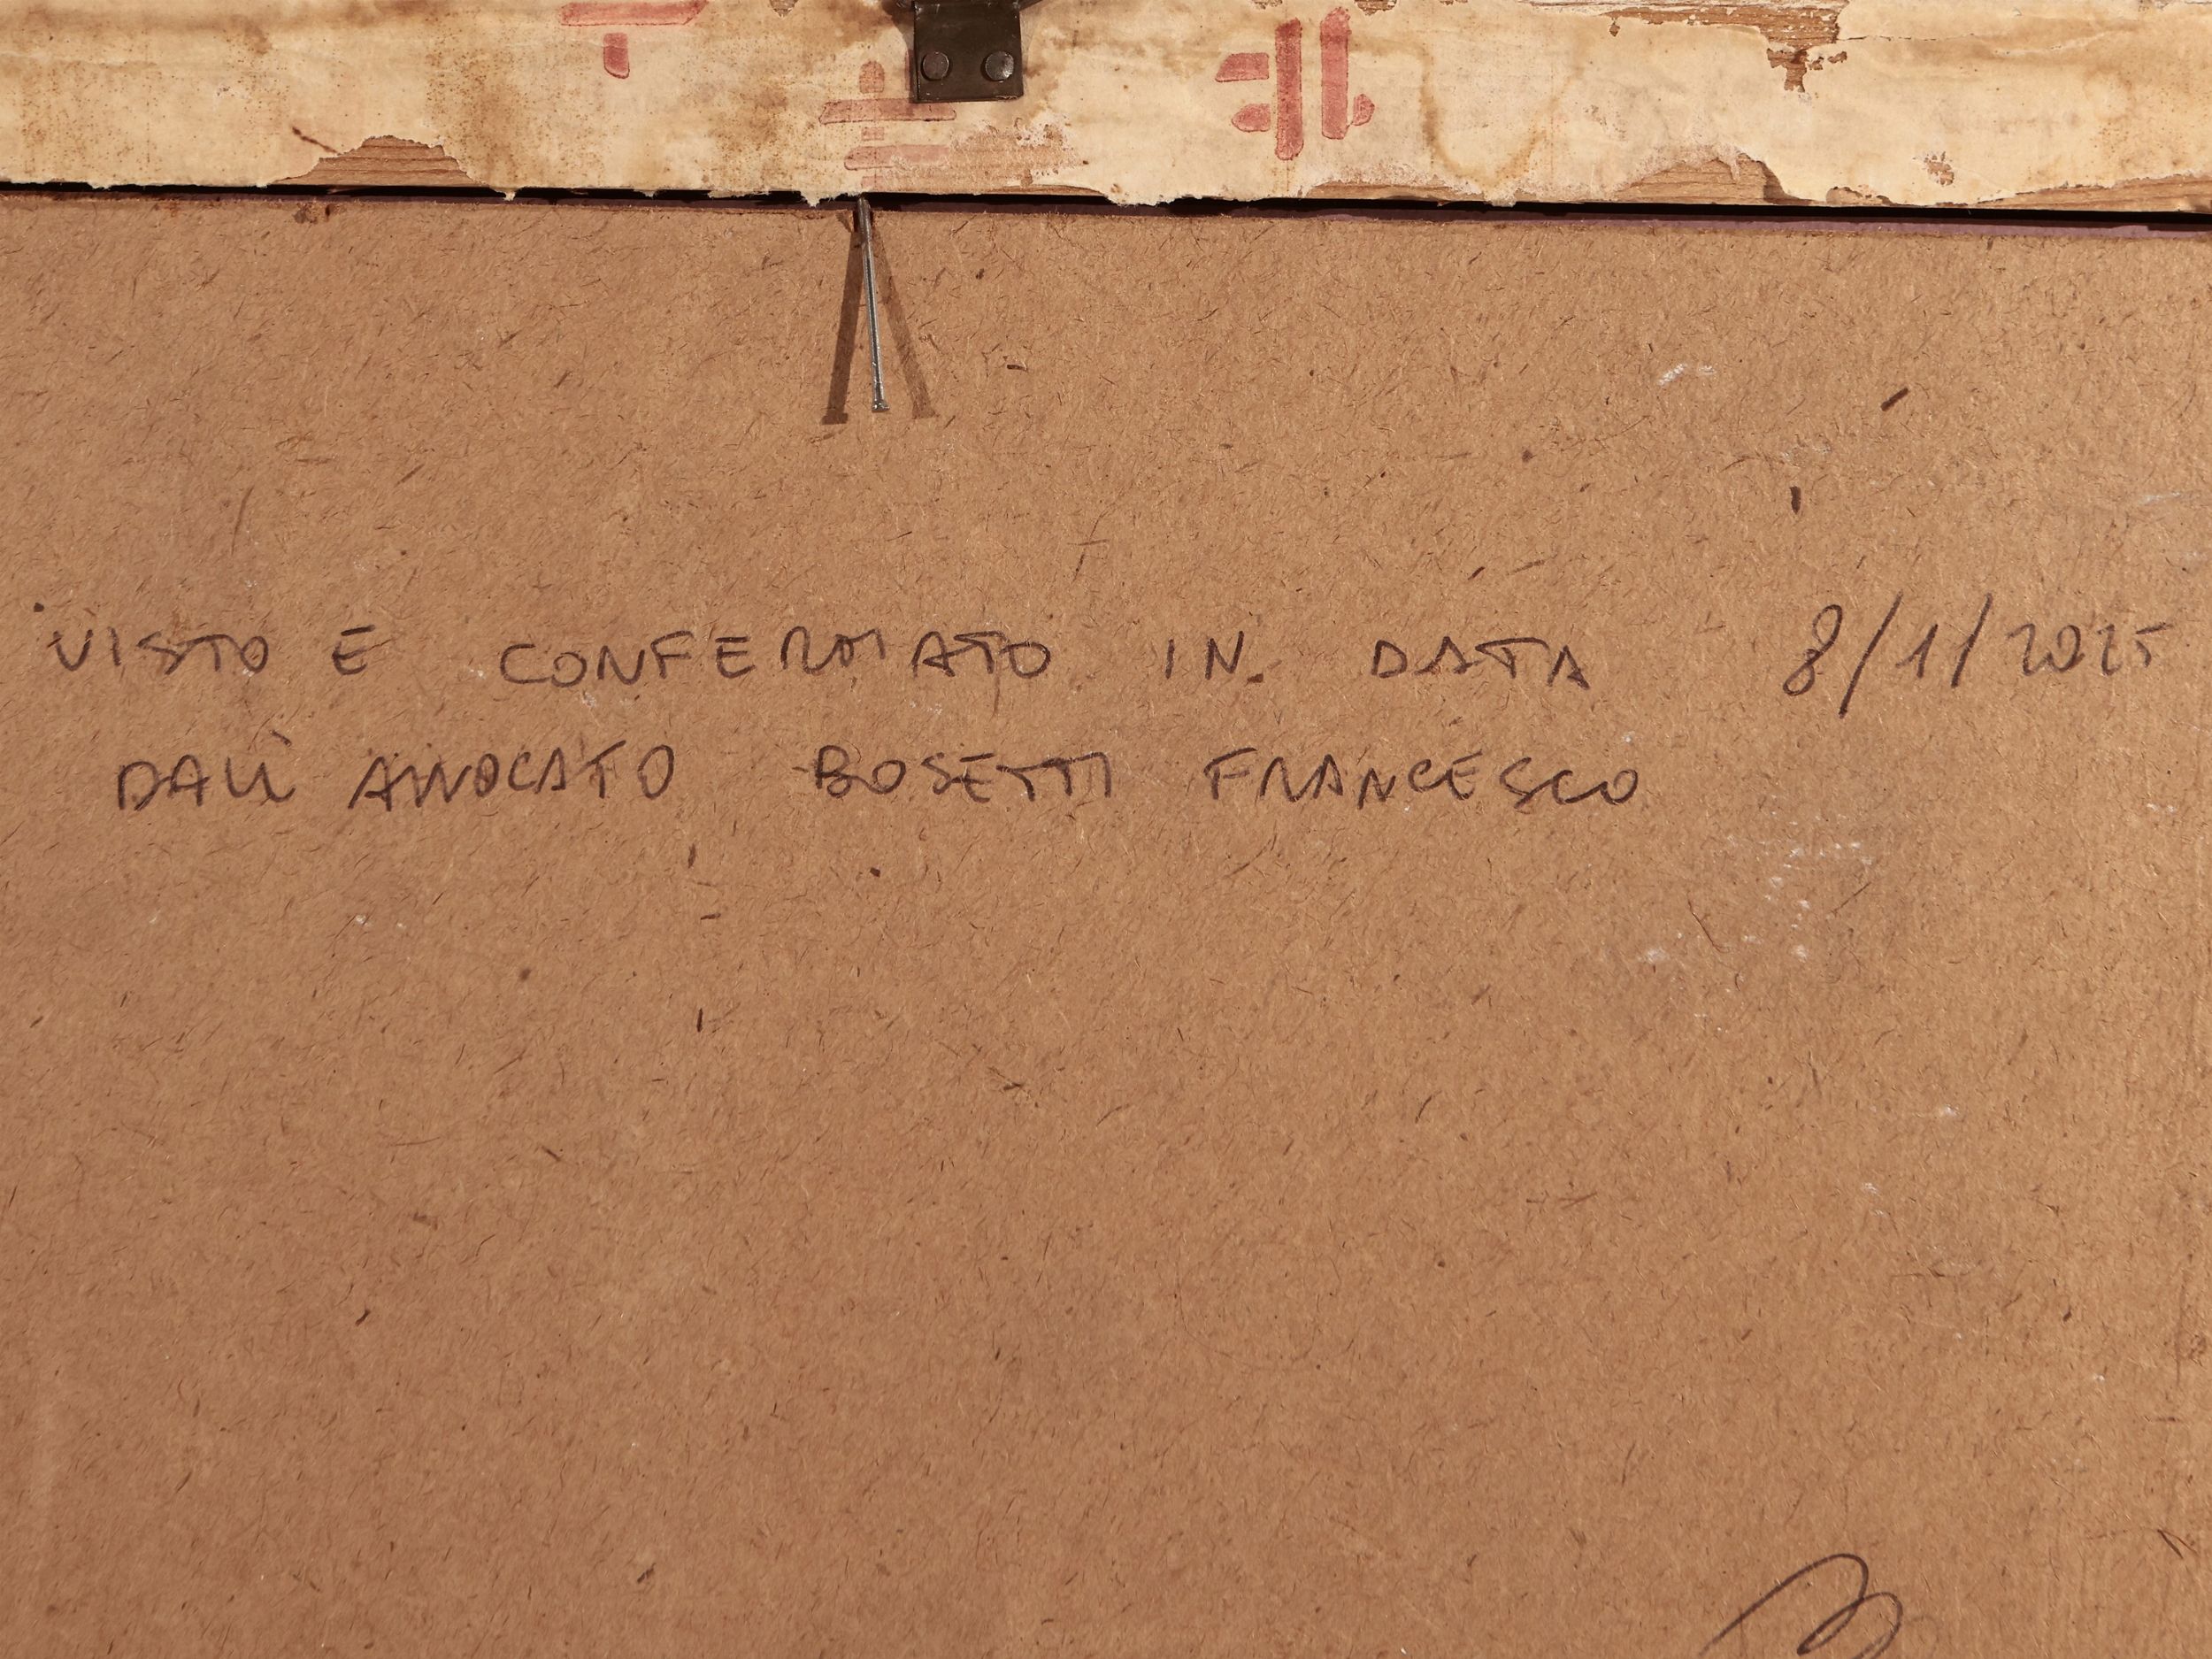 VISTO E CONFERMATO IN DATA 8/1/2025
DALL' AVVOCATO BOSETTI FRANCESCO